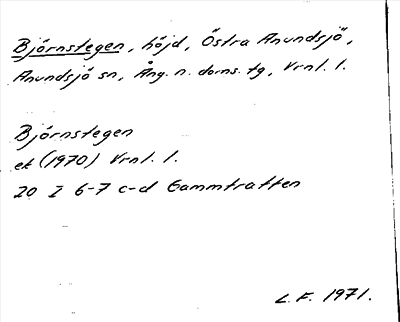 Björnstegen, höjd, Östra Anundsjö,
Anundsjö sn, Ång. n. doms. tg, Vrnl. l.
Björnstegen
ek (1970) Vrnl. l.
20 I 6-7 c-d Gammtratten
L.F. 1971.